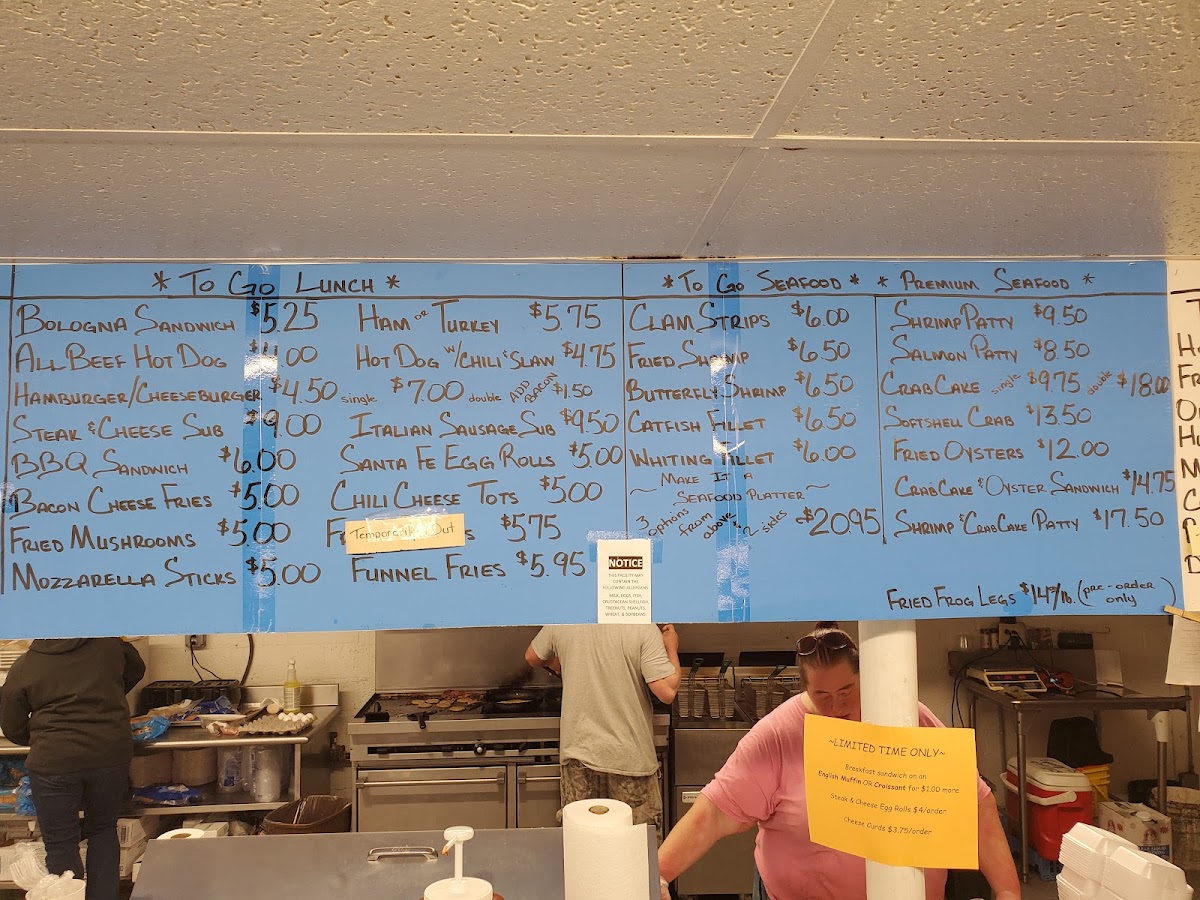 * To Go Lunch *
Bologna Sandwich $5.25
All Beef Hot Dog $4.00
Hamburger/Cheeseburger $4.50 single $7.00 double Add Bacon $1.50
Steak & Cheese Sub $9.00
BBQ Sandwich $6.00
Bacon Cheese Fries $5.00
Fried Mushrooms $5.00
Mozzarella Sticks $5.00
Ham or Turkey $5.75
Hot Dog w/Chili & Slaw $4.75
Italian Sausage Sub $9.50
Santa Fe Egg Rolls $5.00
Chili Cheese Tots $5.00
Temporarily Out $5.75
Funnel Fries $5.95
* To Go Seafood *
Clam Strips $6.00
Fried Shrimp $6.50
Butterfly Shrimp $6.50
Catfish Fillet $6.50
Whiting Fillet $6.00
Make It a
~ Seafood Platter ~
3 options from above & 2 sides $20.95
* Premium Seafood *
Shrimp Patty $9.50
Salmon Patty $8.50
Crab Cake single $9.75 double $18.00
Softshell Crab $13.50
Fried Oysters $12.00
Crab Cake & Oyster Sandwich $14.75
Shrimp & Crab Cake Patty $17.50
Fried Frog Legs (pre-order only)
NOTICE
THIS FACILITY MAY
CONTAIN THE
FOLLOWING ALLERGENS
MILK, EGGS, FISH,
CRUSTACEAN SHELLFISH,
TREENUTS, PEANUTS,
WHEAT, & SOYBEANS.
~LIMITED TIME ONLY~
Breakfast sandwich on an
English Muffin OR Croissant for $1.00 more
Steak & Cheese Egg Rolls $4/order
Cheese Curds $3.75/order